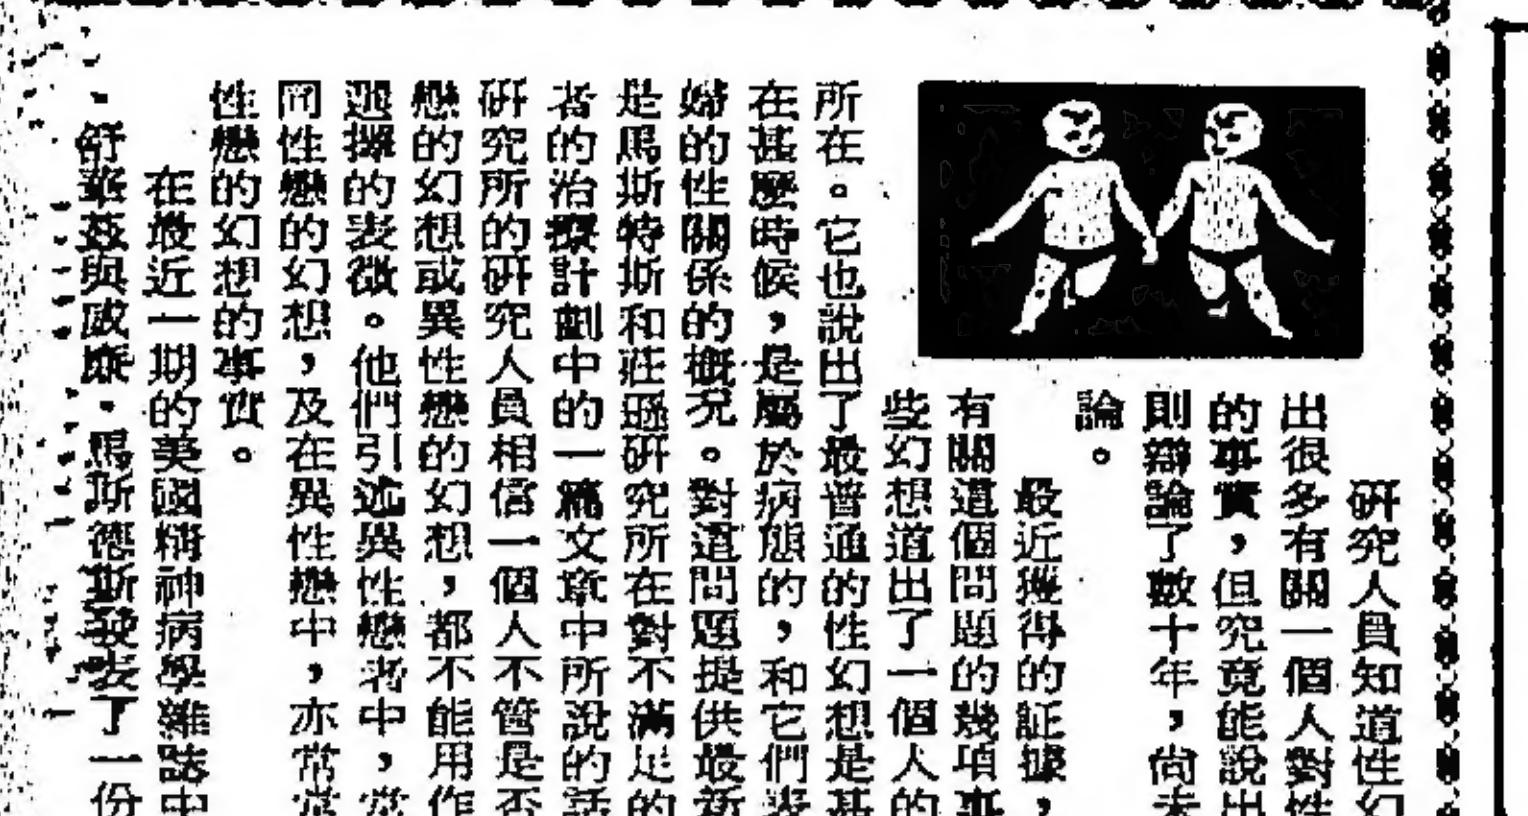 研究人員知道性幻
出很多有關一個人對性
的事實，但究竟能說出
則辯論了數十年，尚未
論。
最近獲得的証據，
有關這個問題的幾項事
些幻想道出了一個人的
所在。它也說出了最普通的性幻想是甚
在甚麼時候，是屬於病態的，和它們表
婦的性關係的概況。對這問題提供最新
是馬斯特斯和莊遜研究所在對不滿足的
者的治療計劃中的一篇文章中所說的話
研究所的研究人員相信一個人不管是否
戀的幻想或異性戀的幻想，都不能用作
選擇的表徵。他們引述異性戀者中，常
同性戀的幻想，及在異性戀中，亦常常
性戀的幻想的事實。
在最近一期的美國精神病學雜誌中
，舒華茲與威廉・馬斯德斯發表了一份